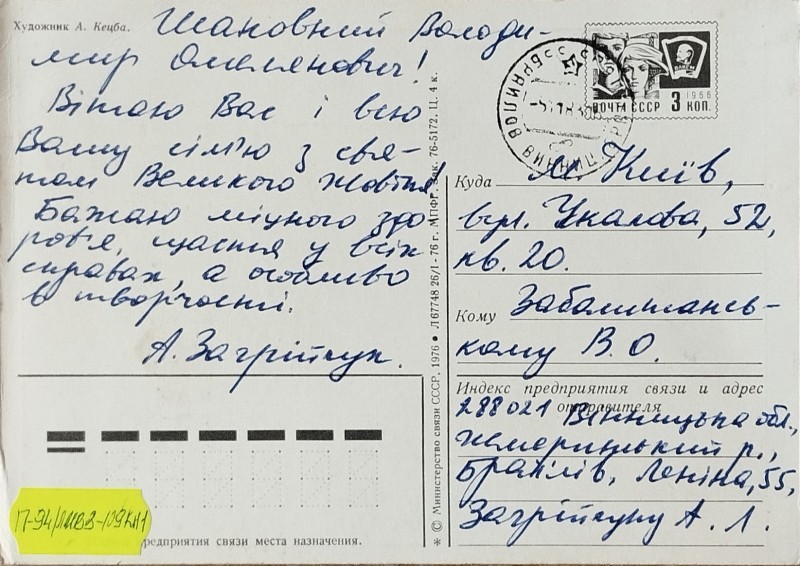 Художник А. Кецба.
Шановний Володи-
мир Омелянович!
Вітаю Вас і всю
Вашу сім'ю з свя-
том Великого Жовтня
Бажаю міцного здо
ров'я, щастя у всіх
справах, а особливо
в творчості.
А. Загрійчук.
1966
ПОЧТА СССР 3 КОП.
Куда м. Київ,
вул. Чкалова, 52,
кв. 20.
Кому Заболштансь-
кому В. О.
Индекс предприятия связи и адрес
отправителя
288021 Вінницька обл.,
Жмеринський р.,
Браїлів, Леніна, 55,
Загрійчуку А. Л.
* © Министерство связи СССР. 1976 ● Л 67748 26/I-76 г. МПФГ. Зак. 76-5172. Ц. 4 к.
редприятия связи места назначения.